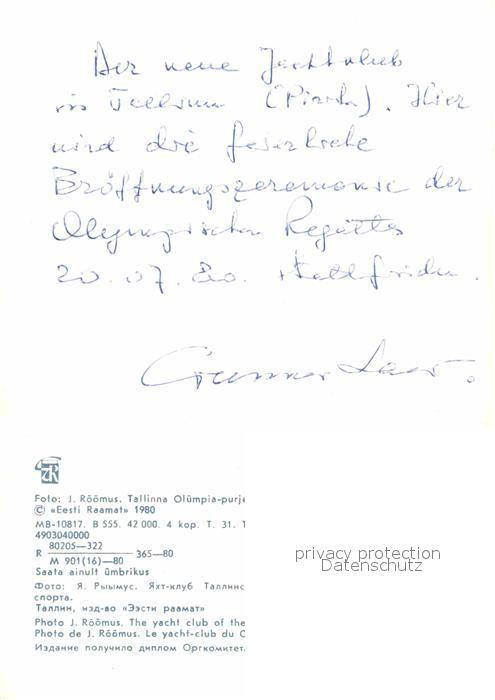 Der neue Jachtklub
in Tallinn (Pirita). Hier
wird die feierliche
Eröffnungszeremonie der
Olympischen Regattas
20.07.80. stattfinden.
Gunnar
Foto: J. Rõõmus. Tallinna Olümpia-purje
© «Eesti Raamat» 1980
MB-10817. B 555. 42 000. 4 kop. T. 31. T
4903040000
R 80205—322 365—80
M 901(16)—80
Saata ainult ümbrikus
Фото: Я. Рыымус. Яхт-клуб Таллинс
спорта.
Таллин, изд-во «Ээсти раамат»
Photo J. Rõõmus. The yacht club of the
Photo de J. Rõõmus. Le yacht-club du C
Издание получило диплом Оргкомитет
privacy protection
Datenschutz